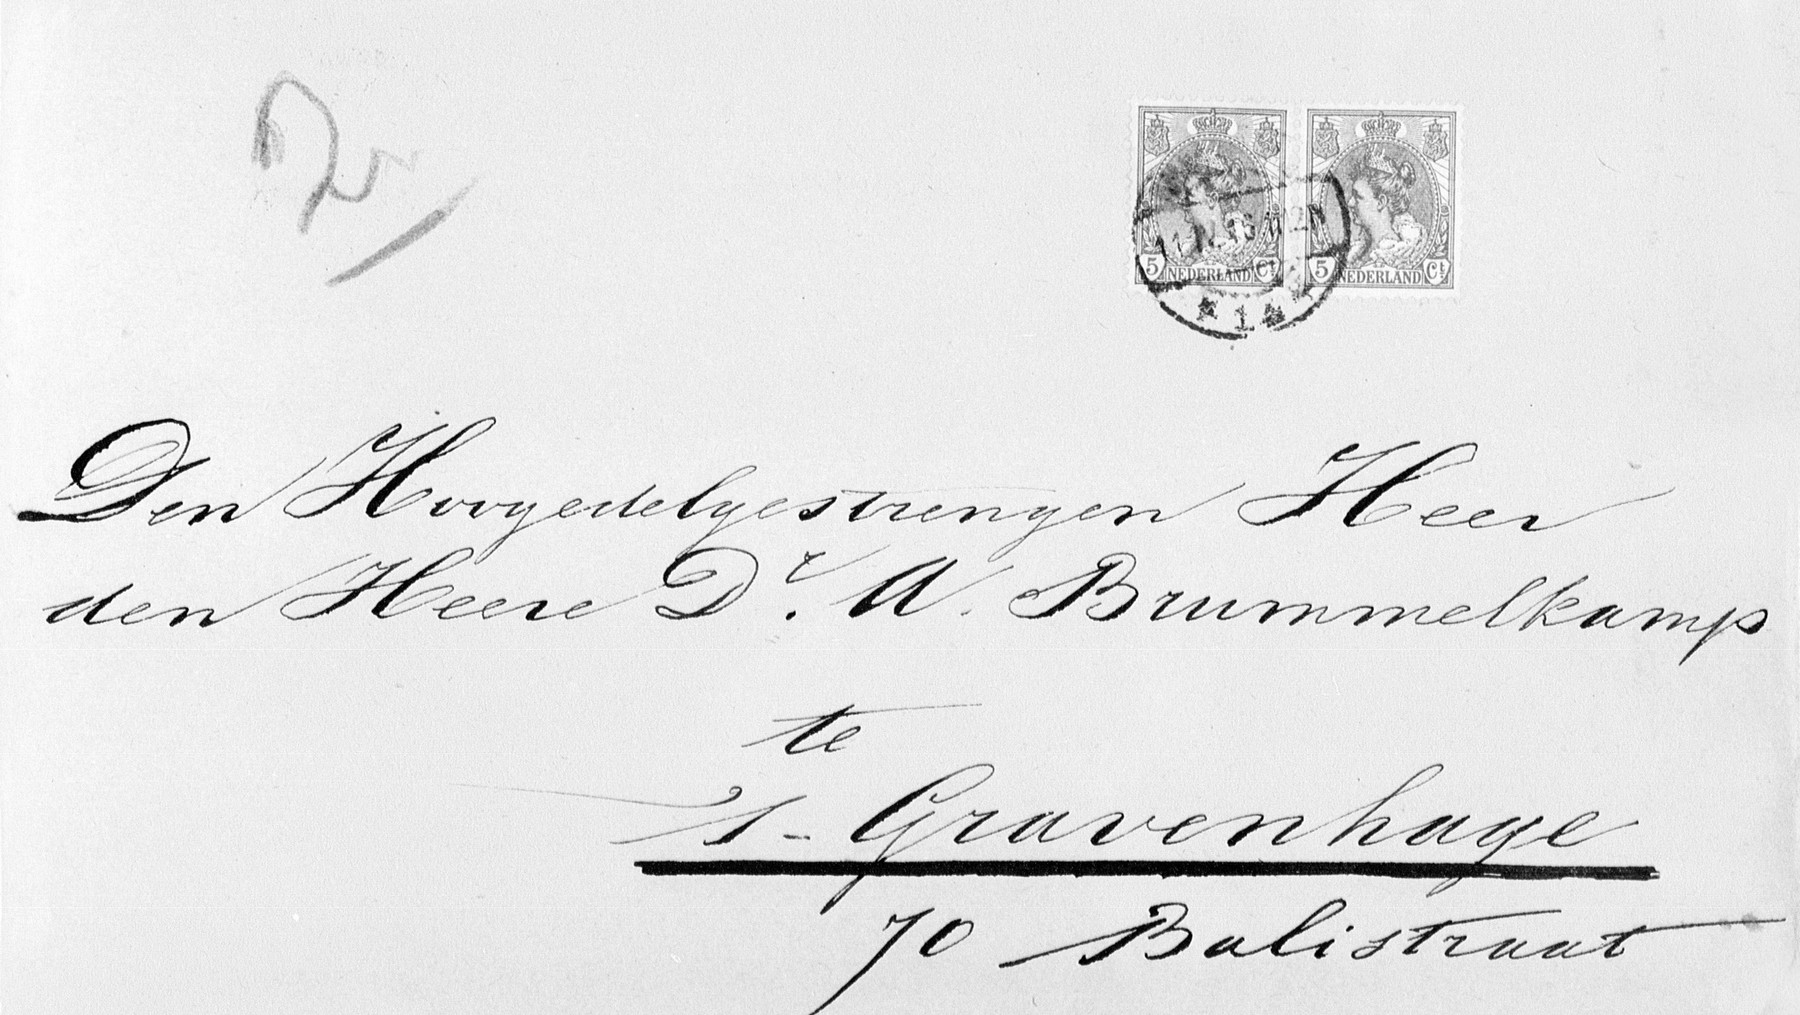 5 NEDERLAND Ct
5 NEDERLAND Ct
1
Den Hoogedelgestrengen Heer
den Heere Dr. A. Brummelkamp
te
's-Gravenhage
70 Balistraat